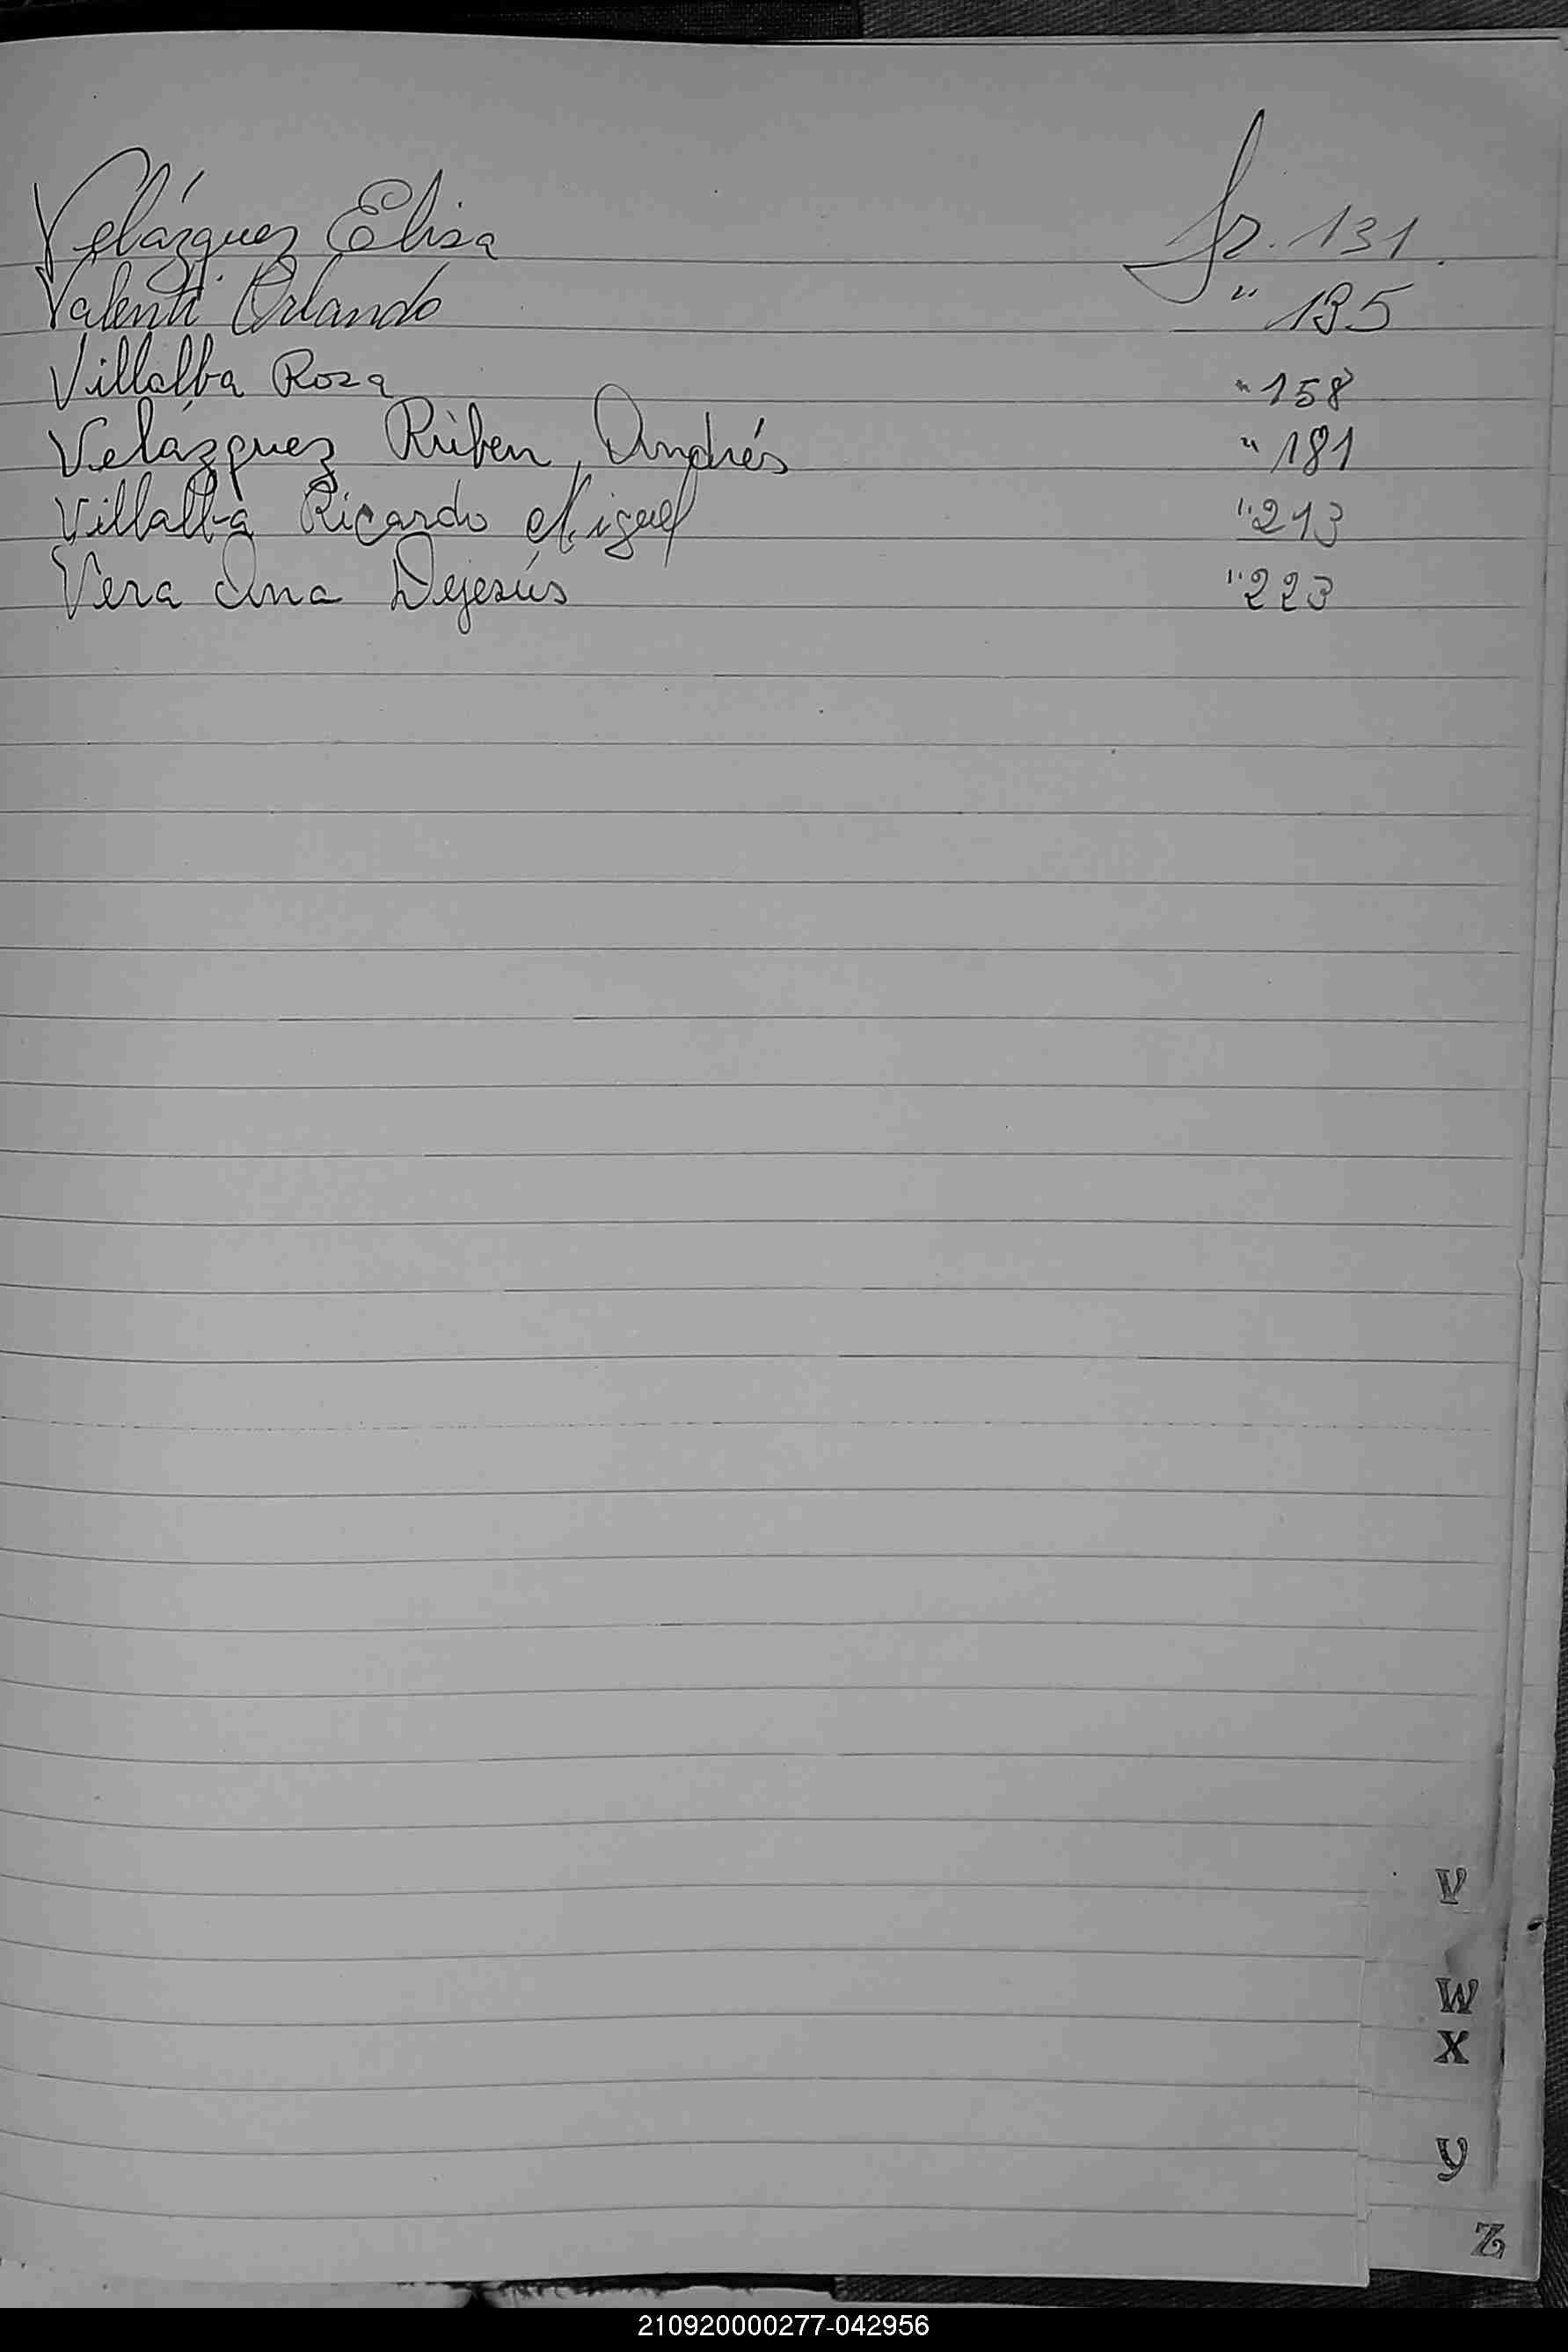 Velázquez Elisa Fr. 131.
Valenti Orlando " 135
Villalba Rosa " 158
Velázquez Rúben, Andrés " 181
Villalba Ricardo Miguel " 213
Vera Ana Dejesús " 223
V
W
X
Y
Z
210920000277-042956